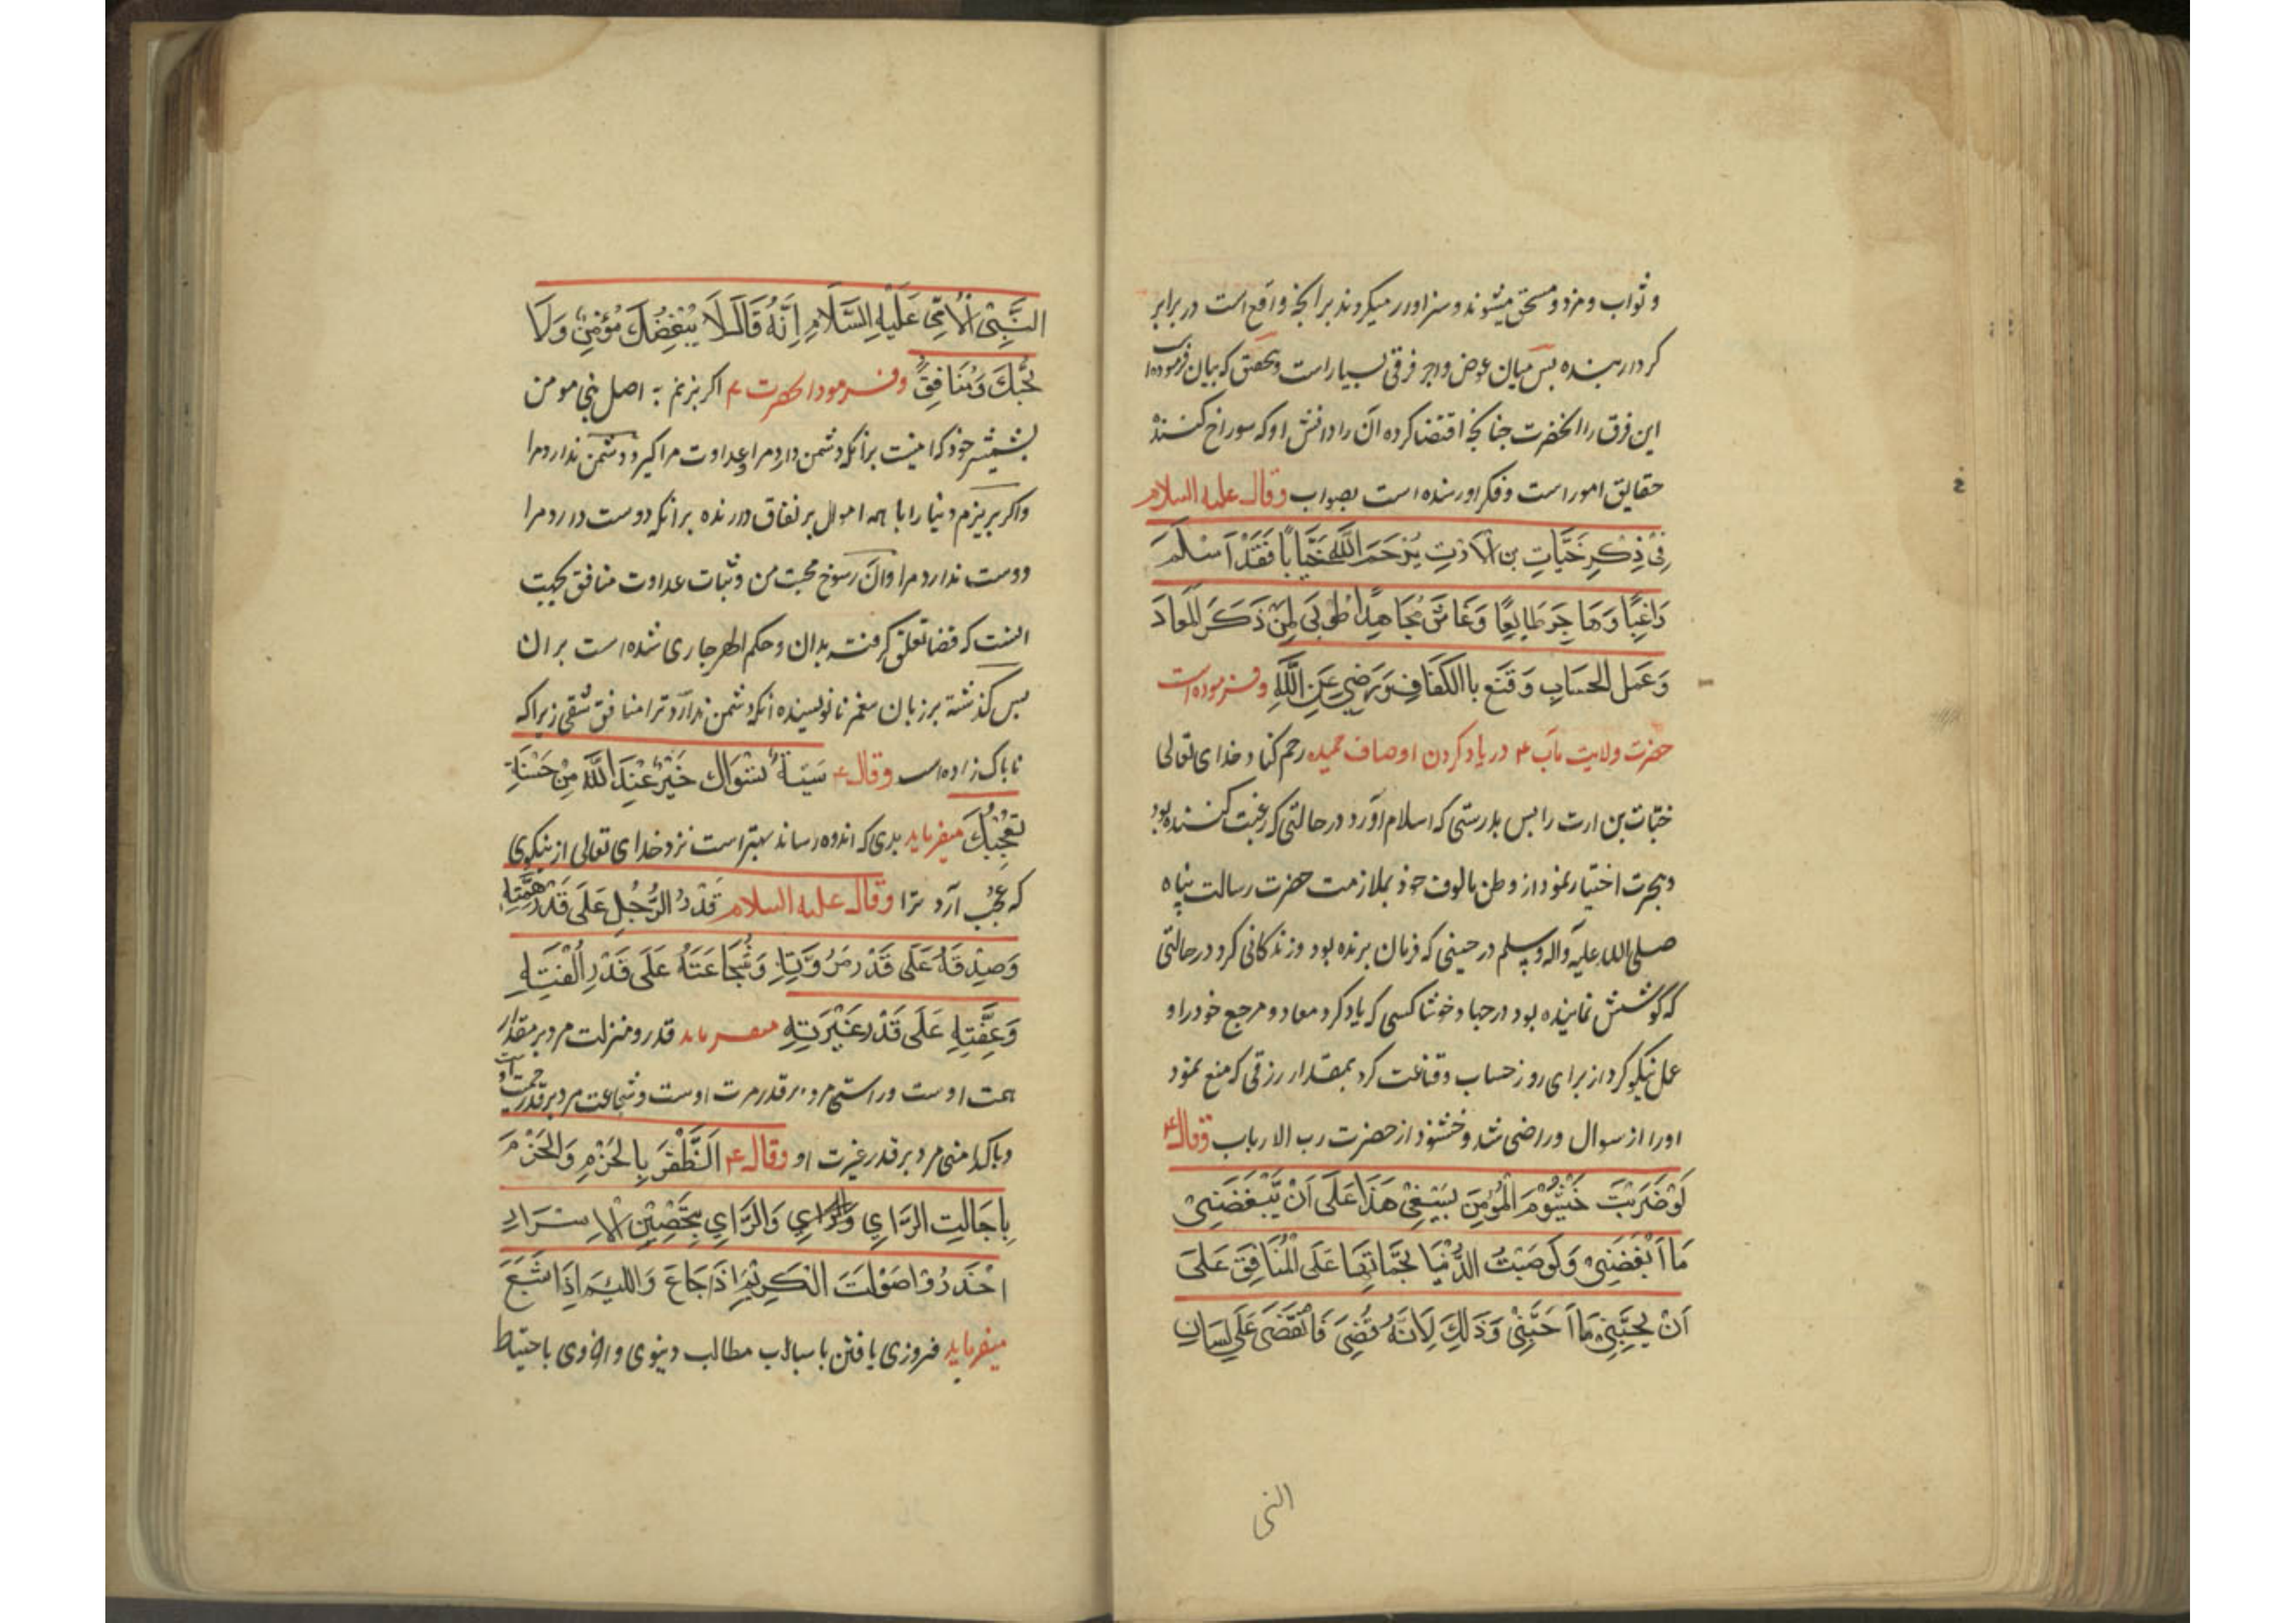 و ثواب و مزد و مستحق میشوند و سزاوار میکردند برانچه واقع است در برابر
کردار بنده بس میان عوض و اجر فرقی بسیار است و بتحقیق که بیان فرموده است
این فرق را انحضرت چنانچه اقتضا کرده ان را دانش او که سوراخ کننده
حقایق امور است و فکر اورسنده است بصواب وقال علیه السلام
فی ذِکرِ خَبّابِ بن الاَرتِ یَرْحَمَ اللّٰه خَبّابًا فَقَدْ اَسْلَمَ
رَاغِبًا وَهَاجَرَ طَایِعًا وَعَاشَ مُجَاهِدًا طُوبَی لِمَنْ ذَکَرَ المعَادَ
وَعَمَلَ لحسَابِ وَقَنَع باالکَفَافِ وَرَضِیَ عَنِ اللّٰهِ وفرموده است
حضرت ولایت مآب ع در یاد کردن اوصاف حمیده رحم کناد خدای تعالی
خبّات بن ارت را بس بدرستی که اسلام آورد در حالتی که رغبت کننده بود
و هجرت اختیار نمود از وطن مالوف خوذ بملازمت حضرت رسالت پناه
صلی الله علیه وآله وسلم در حینی که فرمان برنده بود و زندکانی کرد در حالتی
که کوشش نماینده بود در حبا و خوشا کسی که یاد کرد معاد و مرجع خود را و
عمل نیکو کرد از برای روز حساب و قناعت کرد بمقدار رزقی که منع نمود
اورا از سوال و راضی شد و خشنوذ از حضرت رب الارباب وقال ع
لَوْضَرَبْتَ خَیْشُوْمَ الْمُؤْمِنِ بِسَیْفِیْ هَذَا عَلَی اَنْ یَبْغَضَنِیْ
مَا اَبْغَضَنِیْ وَلَوصَبَبْتُ الدُّنْیَا بجَمَّاتِهَا عَلَی الْمُنَافِقِ عَلَی
اَنْ یُحِبَّنِیْ مَا اَحَبَّنِیْ وَذَلِکَ لِاَنَّهُ قُضِیَ فَانْقَضَی عَلَی لِسَانِ
النبی
النَّبِیِّ الْاُمِّیِ عَلَیْهِ السَّلَامِ اِنَّهُ قَالَ لَا یُبْغِضُکَ مُؤْمِنٌ وَلَا
یُحِبُّکَ مُنَافِقٌ وفرمود انحضرت ع اکر بزنم به اصل بنی مومن
بشمشیر خوذ که اینست برانکه دشمن دارد مرا وعداوت مراکیرد دشمن ندارد مرا
واکر بریزم دنیا را با همه اموال بر نفاق دارنده برانکه دوست دارد مرا
دوست ندارد مرا وان رسوخ محبت من و ثبات عداوت منافق بجهت
انست که قضا تعلق کرفته بدان و حکم الهی جاری شده است بران
بس کذشته بر زبان پیغمبر نا نویسنده انکه دشمن ندارد ترا منافق شقی زیرا که
ناباک زاده است وقال ع سَیّئَةٌ تَسُوْاَکَ خَیْرٌ عِنْدَ اللّٰه مِنْ حَسَنَةٍ
تعْجِبُکَ میفرماید بدی که اندوه رساند بهتر است نزد خدای تعالی از نیکوی
که عجب آرد ترا وقال علیه السلام قَدْرُ الرَّجُلِ عَلَی قَدْرِ هِمَّتِهِ
وَصِدْقَهُ عَلَی قَدْرِ مُرُوَّتِهِ وَشُجَاعَتَهُ عَلَی قَدْرِ اَلْفَتِهِ
وَعِفَّتِهِ عَلَی قَدْرِ غَیْرَتِهِ میفرماید قدر و منزلت مرد بر مقدار
همت اوست و راستی مرد بر قدر مرت اوست و شجاعت مرد بر قدر حمیت اوست
وباکدامنی مرد بر قدر غیرت او وقال ع اَلظَّفَرَ بِالحَزْمِ وَالحَزْمَ
بِاجَالَتِ الرَّایِ وَالرَّایِ بِتَحْصِیْنِ الاِسْرَارِ
اِحْذَرُوْا صَوْلَتَ الْکَرِیْمِ اِذَا جَاعَ وَاللئِیْمِ اِذَا شَبَعَ
میفرماید فیروزی یافتن باسباب مطالب دنیوی و اخروی باحتیاط